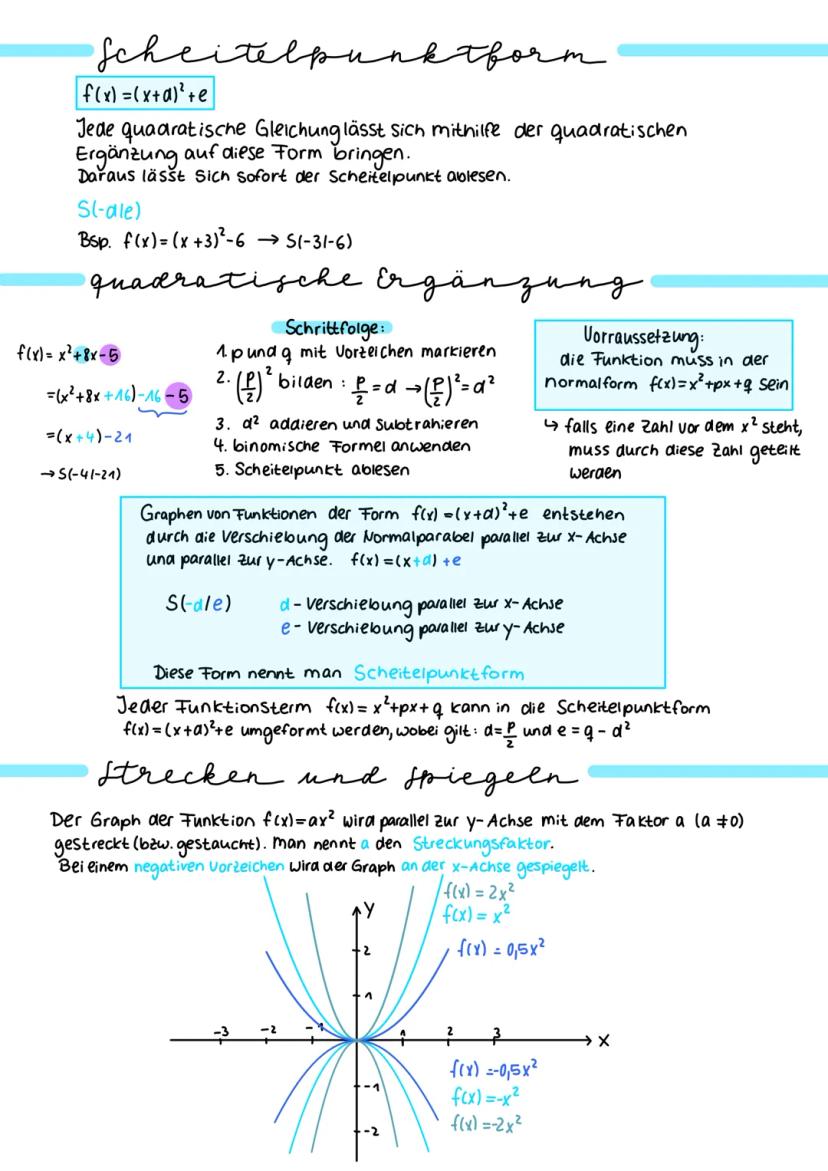 Scheitelpunktform
f(x) = (x+d)² + e
Jede quadratische Gleichung lässt sich mithilfe der quadratischen
Ergänzung auf diese Form bringen.
Daraus lässt sich sofort der Scheitelpunkt ablesen.
S(-d|e)
Bsp. f(x) = (x+3)² - 6 → S(-3|-6)
quadratische Ergänzung
f(x) = x² + 8x - 5
= (x² + 8x + 16) - 16 - 5
= (x + 4) - 21
→ S(-4|-21)
Schrittfolge:
1. p und q mit Vorzeichen markieren
2. (p/2)² bilden : p/2 = d → (p/2)² = d²
3. d² addieren und subtrahieren
4. binomische Formel anwenden
5. Scheitelpunkt ablesen
Vorraussetzung:
die Funktion muss in der
normalform f(x) = x² + px + q sein
↳ falls eine Zahl vor dem x² steht,
muss durch diese Zahl geteilt
werden
Graphen von Funktionen der Form f(x) = (x+d)² + e entstehen
durch die Verschiebung der Normalparabel parallel zur x-Achse
und parallel zur y-Achse. f(x) = (x+d) + e
S(-d/e)
d - Verschiebung parallel zur x-Achse
e - Verschiebung parallel zur y-Achse
Diese Form nennt man Scheitelpunktform
Jeder Funktionsterm f(x) = x² + px + q kann in die Scheitelpunktform
f(x) = (x+d)² + e umgeformt werden, wobei gilt: d = p/2 und e = q - d²
Strecken und Spiegeln
Der Graph der Funktion f(x) = ax² wird parallel zur y-Achse mit dem Faktor a (a ≠ 0)
gestreckt (bzw. gestaucht). Man nennt a den Streckungsfaktor.
Bei einem negativen Vorzeichen wird der Graph an der x-Achse gespiegelt.
f(x) = 2x²
f(x) = x²
f(x) = 0,5x²
y
2
1
-3 -2 -1 1 2 3 x
-1
-2
f(x) = -0,5x²
f(x) = -x²
f(x) = -2x²